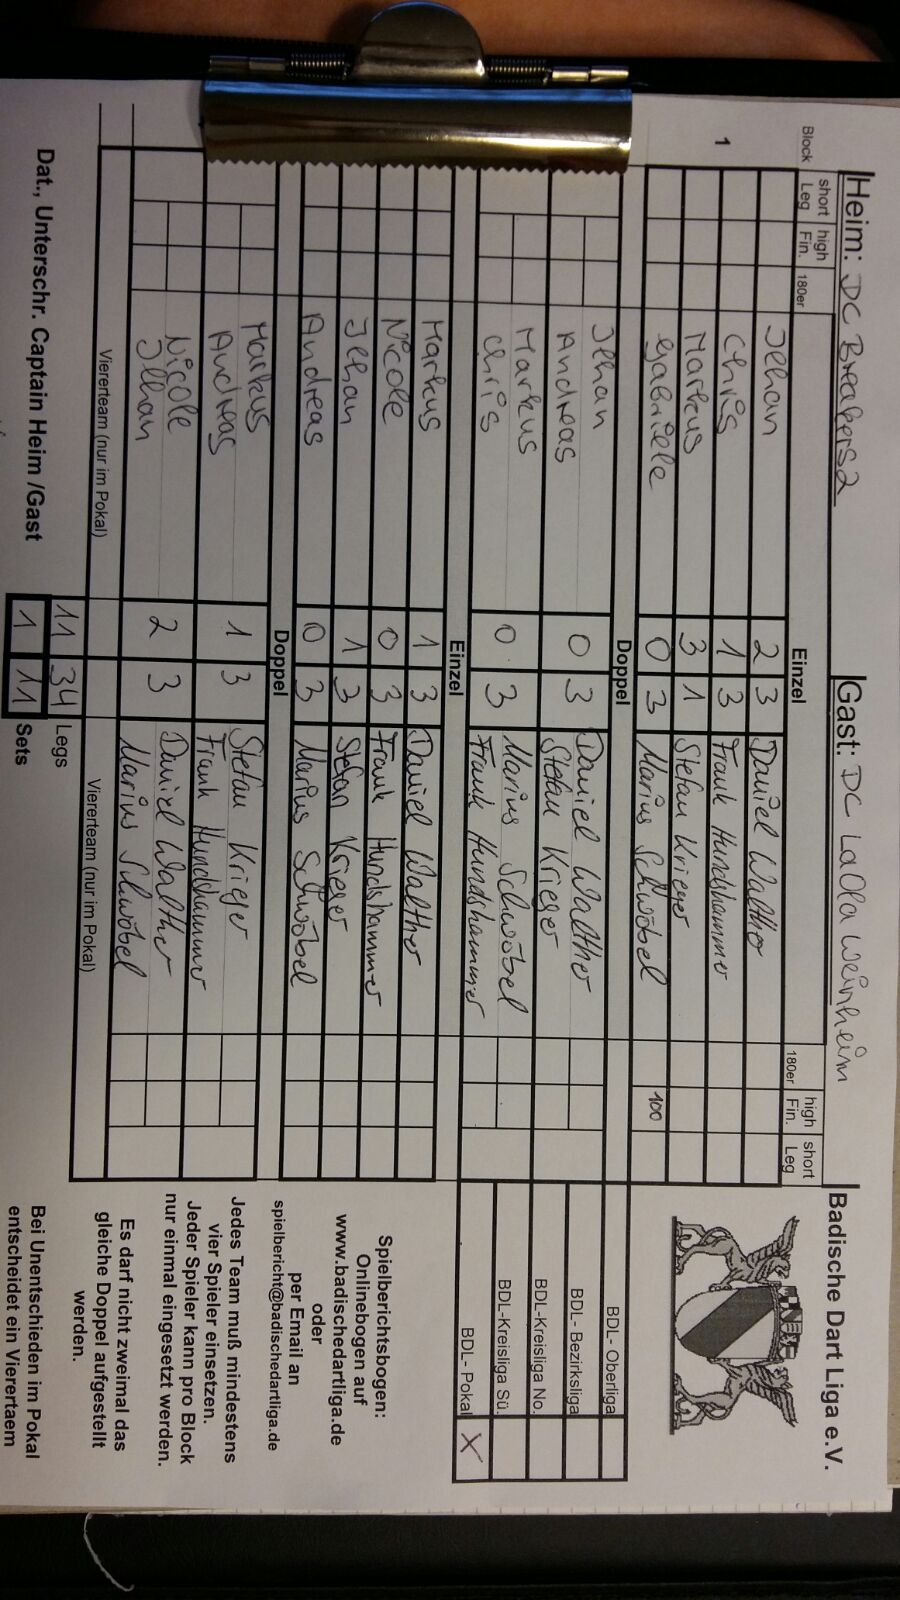 Heim: DC Breakers2 Gast: DC Lalla Weinheim Badische Dart Liga e.V.
Block short Leg high Fin. 180er Einzel 180er high Fin. short Leg
Jlhan 2 3 Daniel Walther
1 Chris 1 3 Frank Hundshammer
Markus 3 1 Stefan Krieger
Gabriele 0 3 Marius Schwöbel 100
Doppel BDL- Oberliga
Jlhan Daniel Walther BDL- Bezirksliga
Andreas 0 3 Stefan Krieger BDL-Kreisliga No.
Markus Marius Schwöbel BDL-Kreisliga Sü.
Chris 0 3 Frank Hundshammer BDL- Pokal X
Einzel
Markus 1 3 Daniel Walther
Nicole 0 3 Frank Hundshammer
Jlhan 1 3 Stefan Krieger
Andreas 0 3 Marius Schwöbel
Doppel
Markus Stefan Krieger
Andreas 1 3 Frank Hundshammer
Nicole Daniel Walther
Jlhan 2 3 Marius Schwöbel
Vierertteam (nur im Pokal) Vierertteam (nur im Pokal)
11 34 Legs
Dat., Unterschr. Captain Heim /Gast 1 11 Sets
Spielberichtsbogen:
Onlinebogen auf
www.badischedartliga.de
oder
per Email an
spielbericht@badischedartliga.de
Jedes Team muß mindestens
vier Spieler einsetzen.
Jeder Spieler kann pro Block
nur einmal eingesetzt werden.
Es darf nicht zweimal das
gleiche Doppel aufgestellt
werden.
Bei Unentschieden im Pokal
entscheidet ein Vierertaem